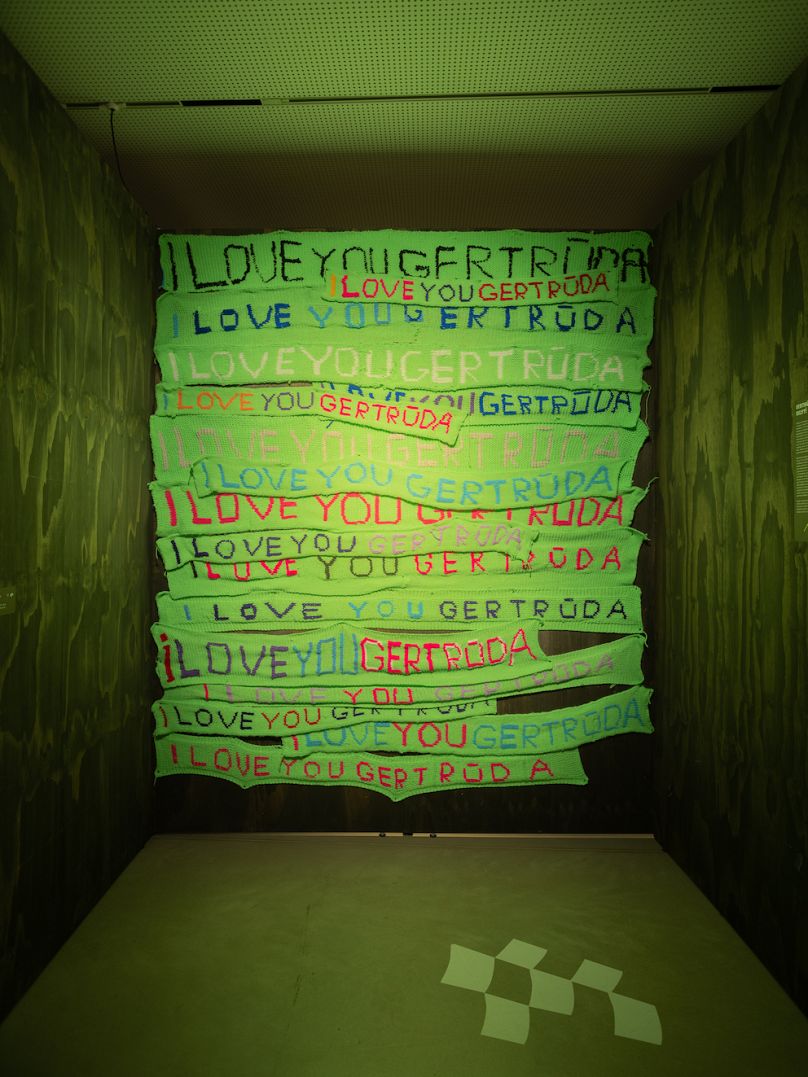 I LOVE YOU GERTRŪDA
I LOVE YOU GERTRŪDA
I LOVE YOU GERTRŪDA
I LOVE YOU GERTRŪDA
I LOVE YOU GERTRŪDA
YOU GERTRŪDA
I LOVE YOU GERTRŪDA
I LOVE YOU GERTRŪDA
I LOVE YOU GERTRŪDA
I LOVE YOU GERTRŪDA
I LOVE YOU GERTRŪDA
I LOVE YOU GERTRŪDA
i LOVE YOU GERTRŪDA
I LOVE YOU GERTRŪDA
I LOVE YOU GERTRŪDA
I LOVE YOU GERTRŪDA
I LOVE YOU GERTRŪDA